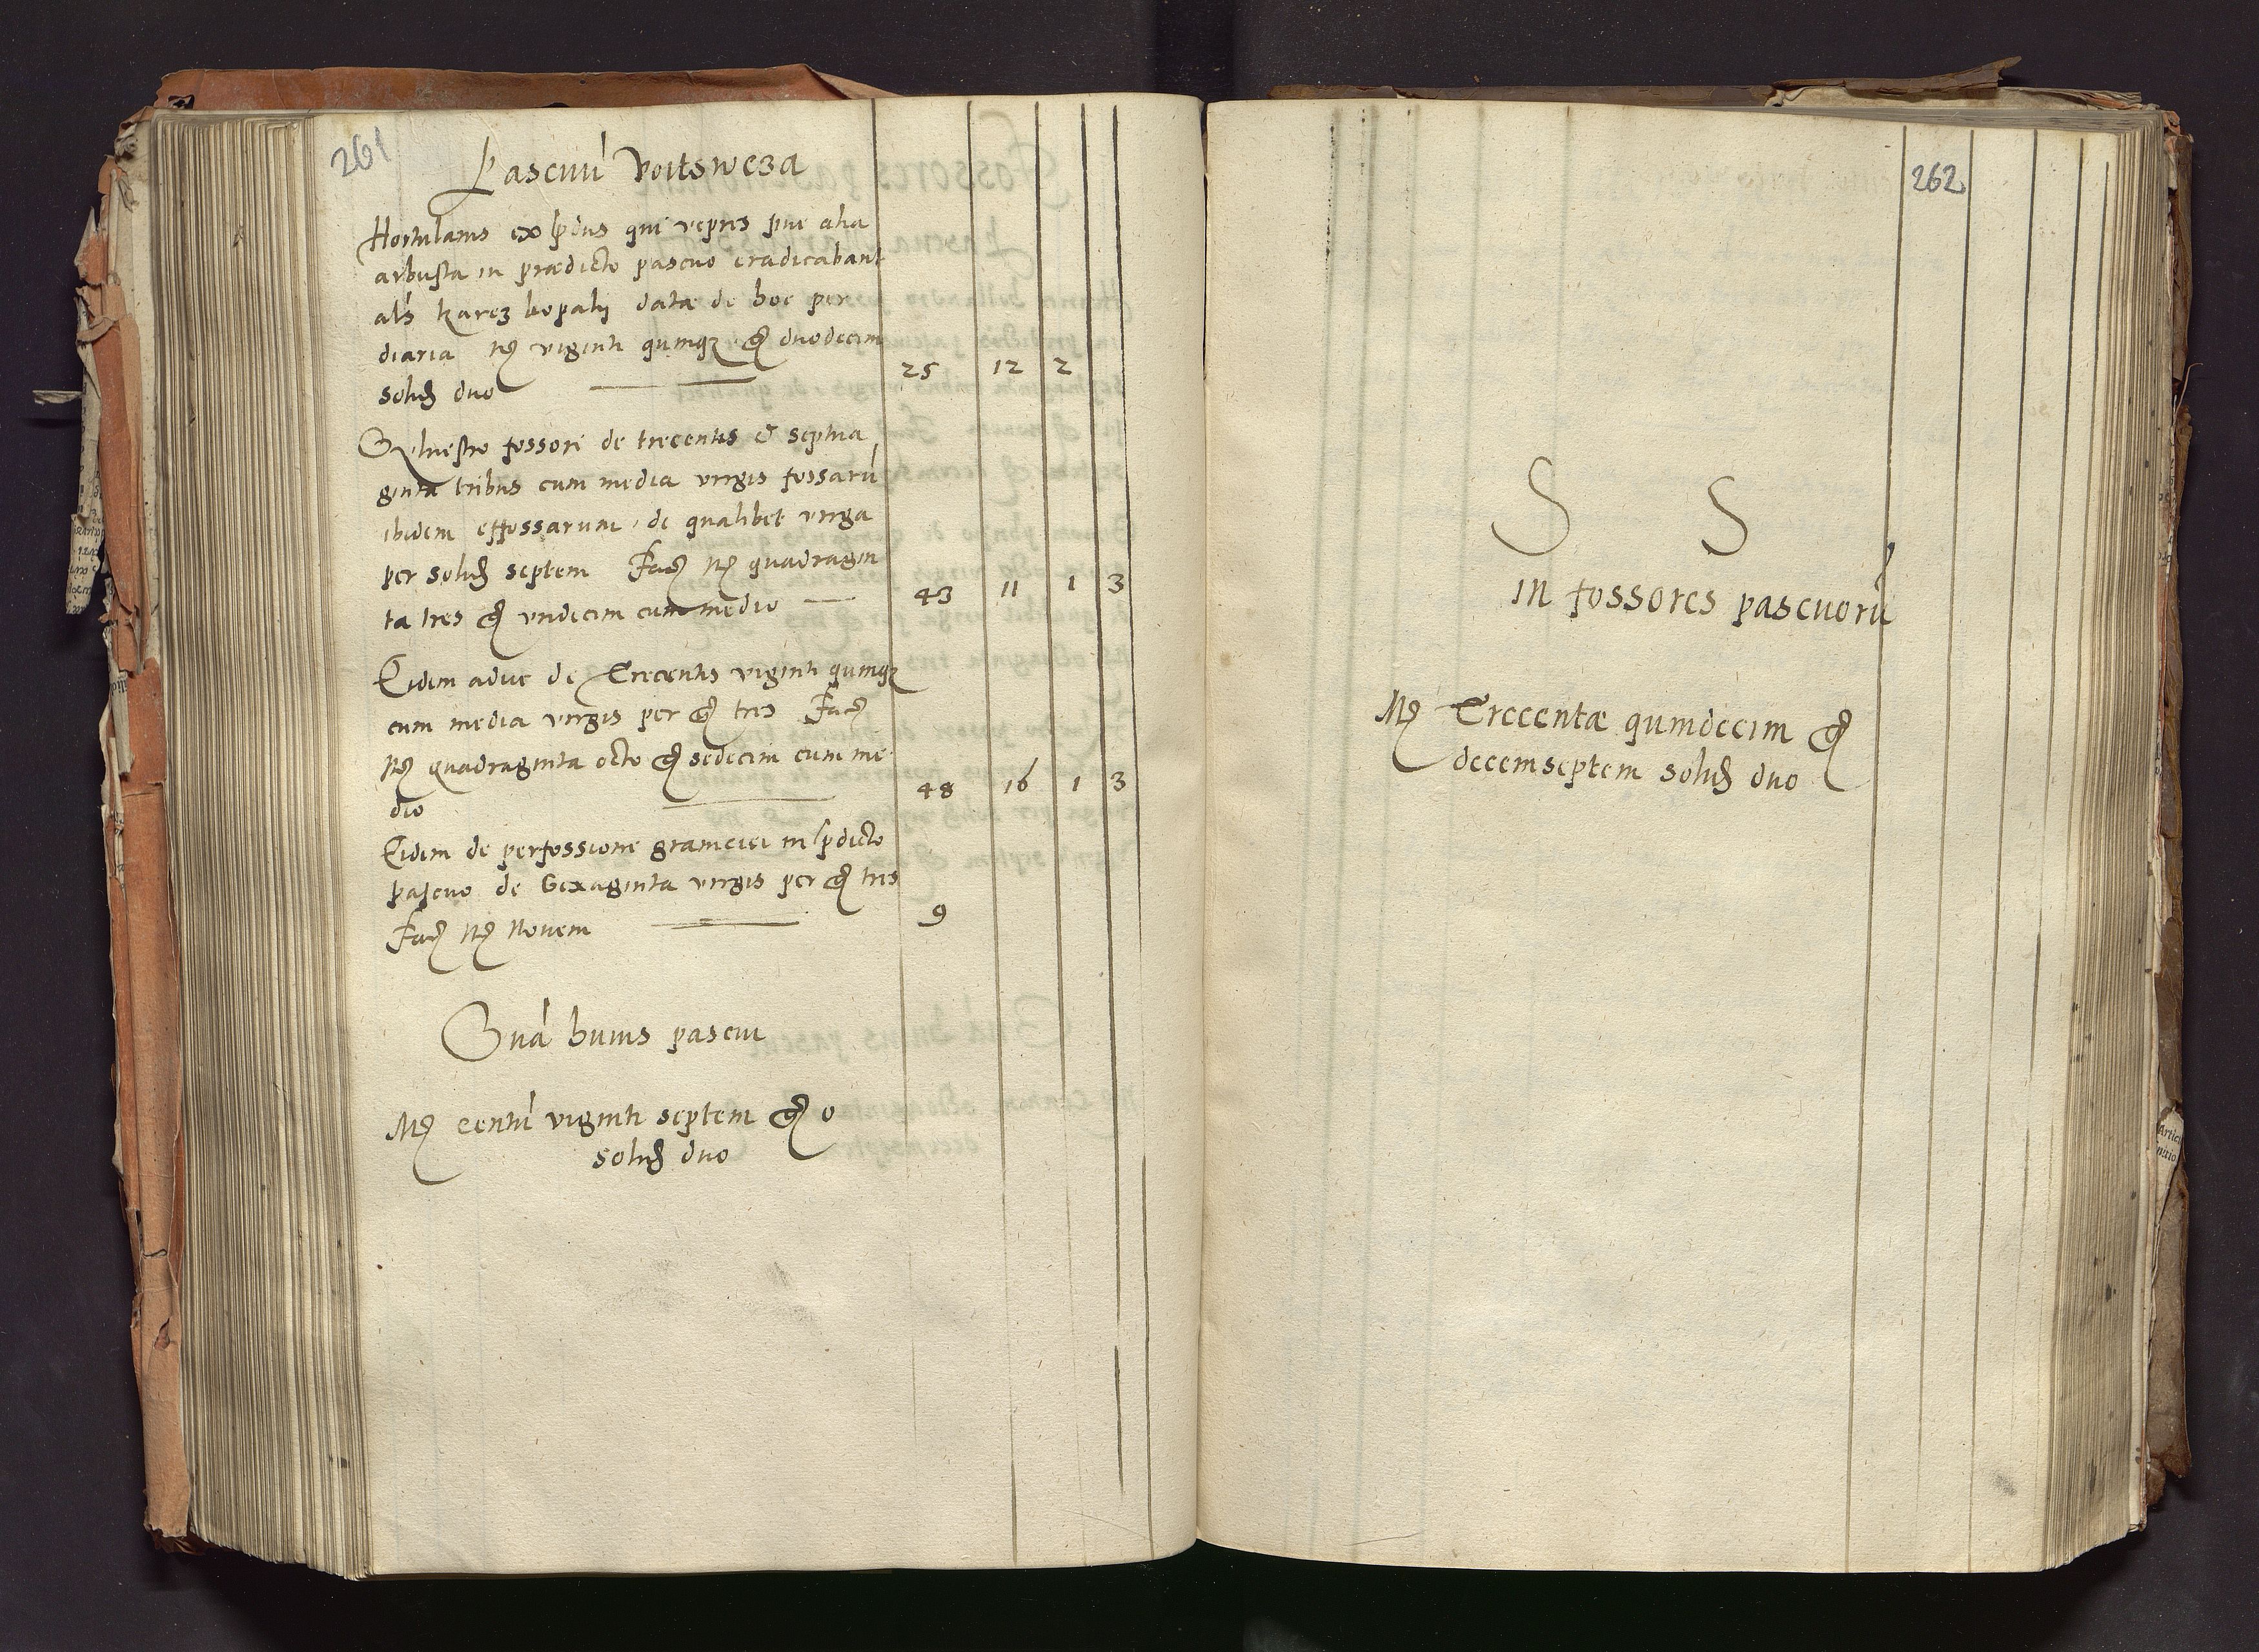 261
Pascuu̍ Voitsweza
Hortulanis ex spdiis qui vepres siue alia
arbusta in prædicto pascuo eradicabant
als karcz kopaly datæ de hoc per
diaria Mr viginti quinqȝ gr duodecim
solid duo 25 12 2
Syluestro fossori de trecentis et septua
ginta tribus cum media virgis fossaru̍
ibidem effossarum, de qualibet virga
per solid septem Facit Mr quadragin
ta tres gr vndecim cum medio 43 11 1 3
Eidem aduc de Trecentis viginti quinqȝ
cum media virgis per gr tres Facit
Mr quadraginta octo gr sedecim cum me
dio 48 16 1 3
Eidem de perfossione graniciei in spdicto
pascuo de Sexaginta virgis per gr tres
Facit Mr Nouem 9
Sua̍ huius pascui
Mr centu̍ viginti septem gr 0
solid duo
262
S S
in fossores pascuoru̍
Mr Trecentæ quindecim gr
decemseptem solid duo